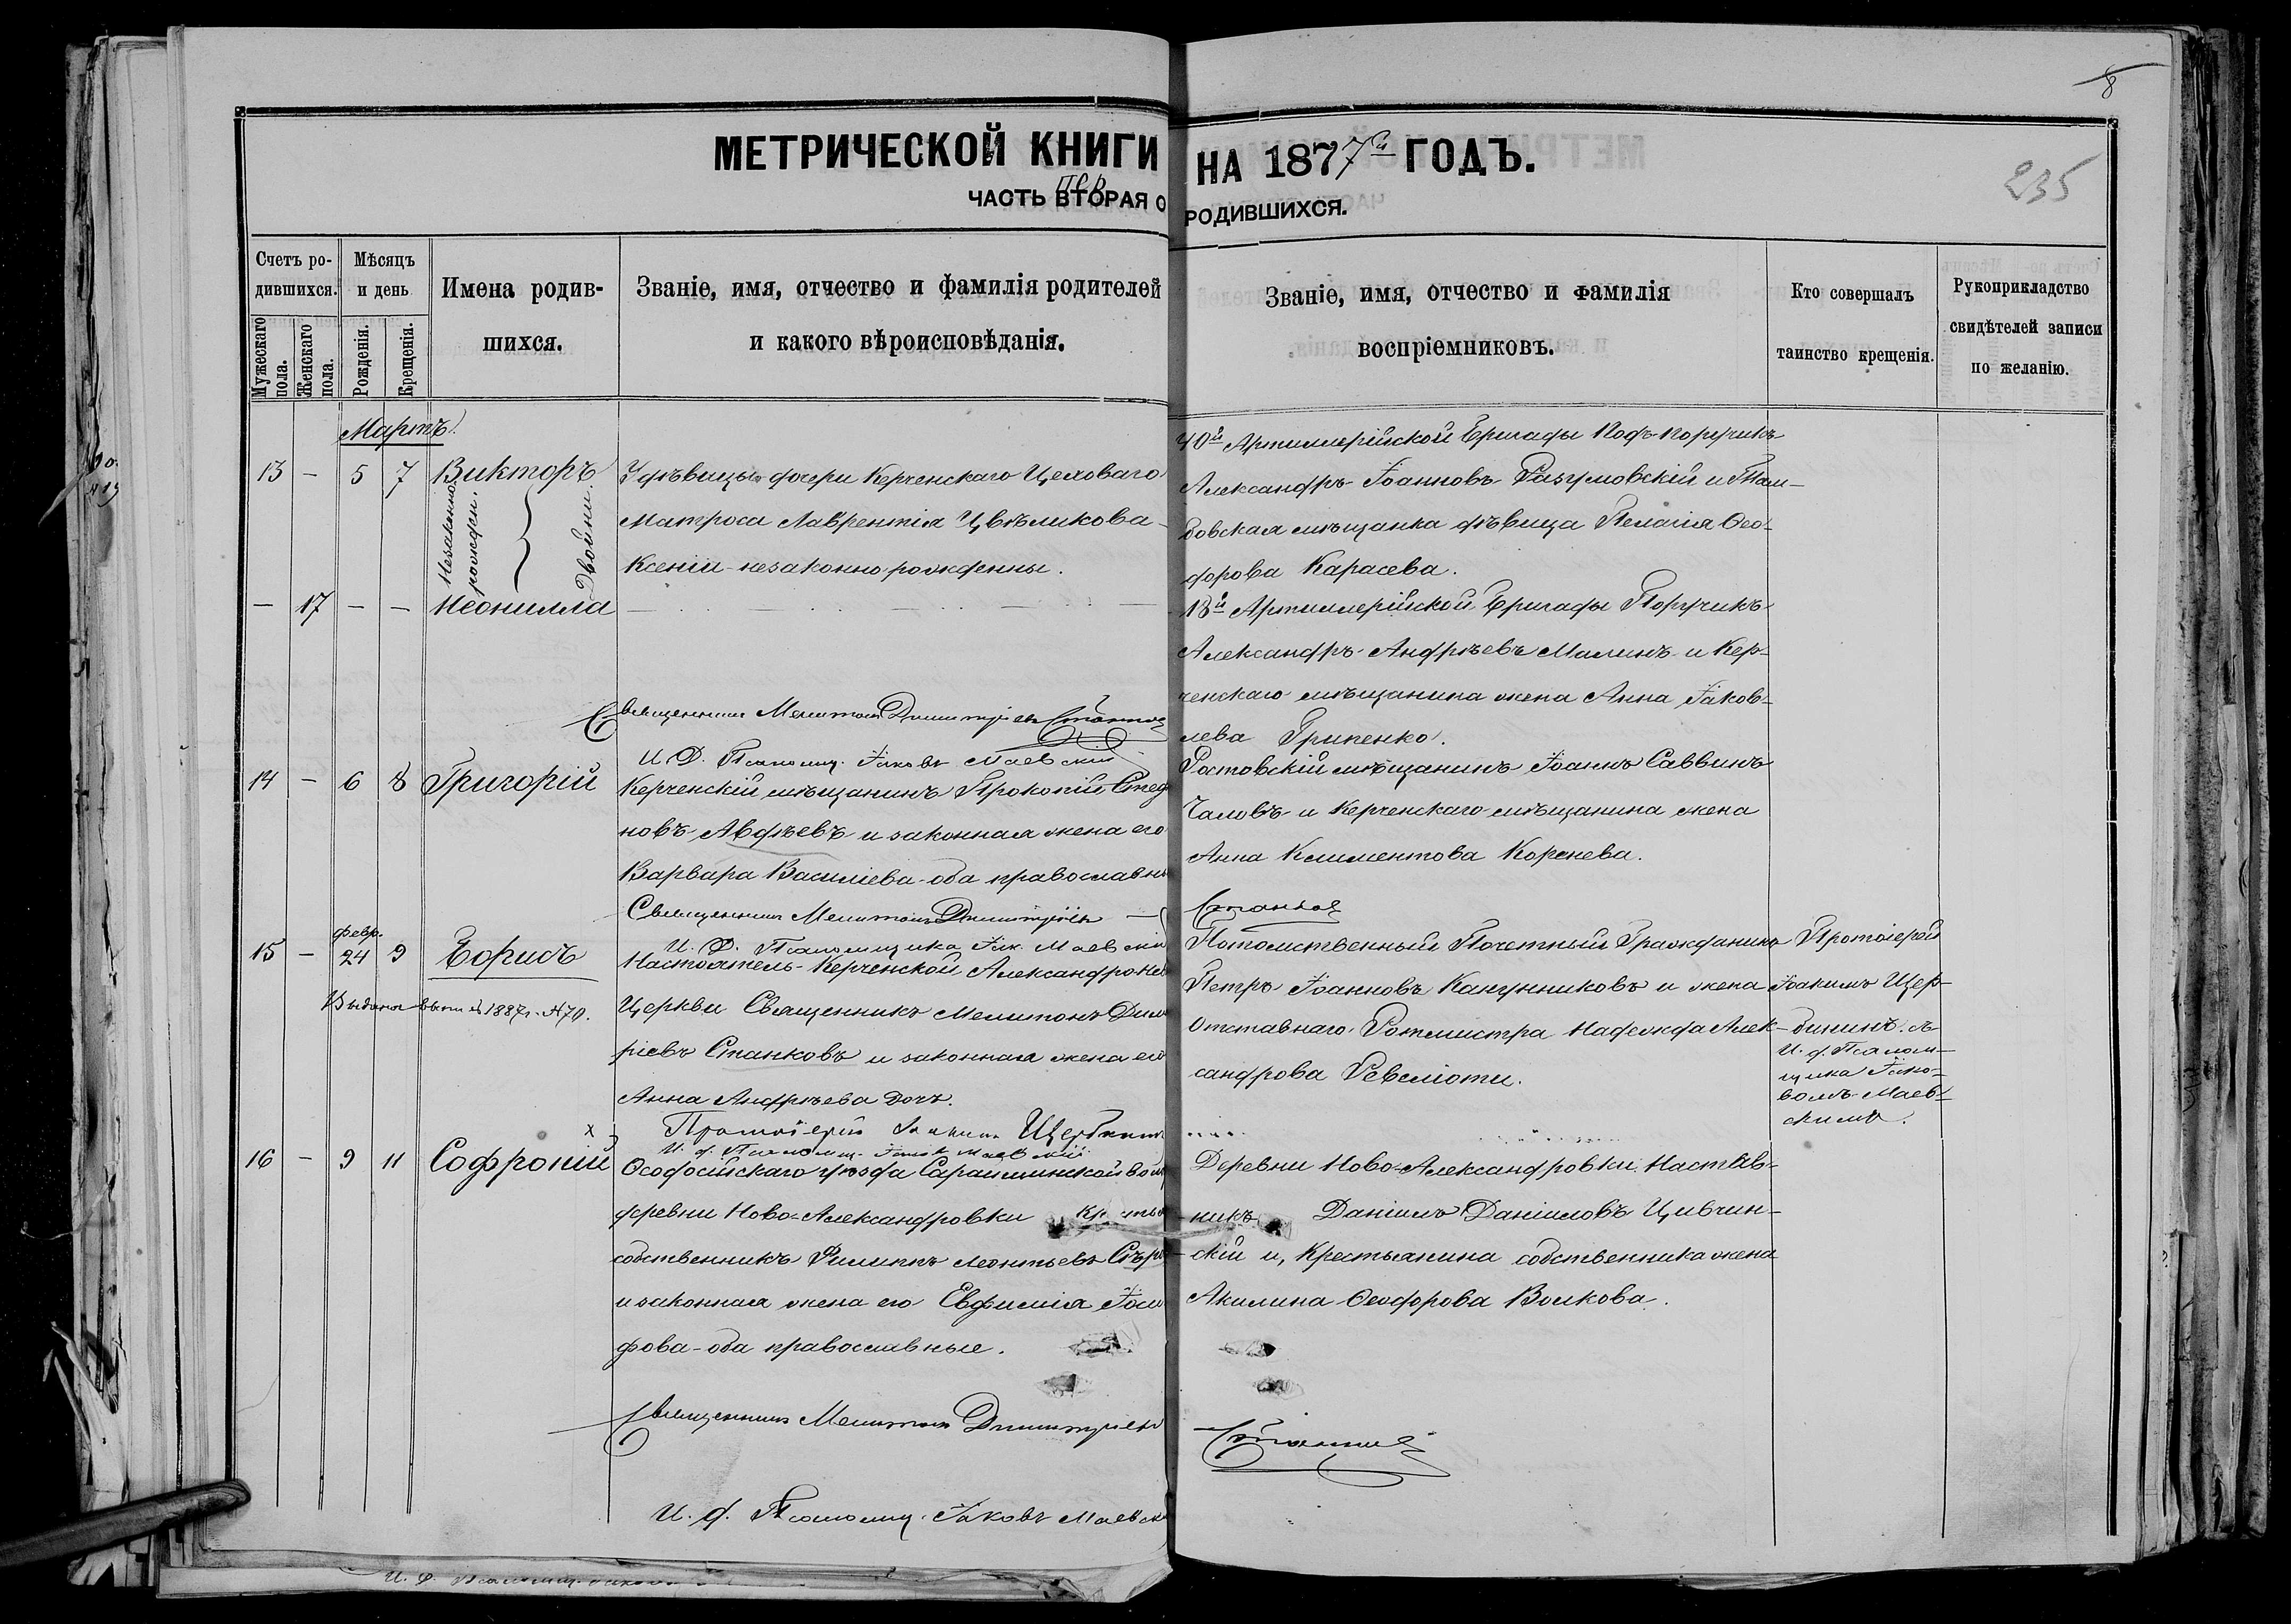 8
МЕТРИЧЕСКОЙ КНИГИ НА 1877й ГОДЪ.
235
пер
ЧАСТЬ ВТОРАЯ О РОДИВШИХСЯ.
Счетъ ро-
дившихся.
Мужескаго пола.
Женскаго пола.
Мѣсяцъ
и день
Рожденія.
Крещенія.
Имена родив-
шихся.
Званіе, имя, отчество и фамилія родителей
и какого вѣроисповѣданія.
Званіе, имя, отчество и фамилія
воспріемниковъ.
Кто совершалъ
таинство крещенія.
Рукоприкладство
свидѣтелей записи
по желанію.
Мартъ.
13 — 5 7 Викторъ
Незаконно
рожден.
Двойни
У дѣвицы дочери Керченскаго Цеховаго
Матроса Лаврентія Цвѣликова
Ксеніи незаконно рожденны.
40й Артиллерійской Бригады Подъ-Поручикъ
Александръ Іоанновъ Разумовскій и Там-
бовская мѣщанка дѣвица Пелагія Ѳео-
дорова Карасева.
— 17 — — Неонилла
13й Артиллерійской Бригады Поручикъ
Александръ Андрѣевъ Малинъ и Кер-
ченскаго мѣщанина жена Анна Іаков-
лева Грипенко.
Священникъ Мелитонъ Димитріевъ Станковъ
И. Д. Псаломщ. Іаковъ Маевскій
14 — 6 8 Григорій
Керченскій мѣщанинъ Прокопій
новъ Авдѣевъ и законная жена его
Варвара Василіева оба православн
Ростовскій мѣщанинъ Іоаннъ Саввинъ
Чаловъ и Керченскаго мѣщанина жена
Анна Климентова Коренева.
Священникъ Мелитонъ Димитріевъ — Станковъ
И. Д. Псаломщика Іак. Маевскій
15 — февр. 24 9 Борисъ
1887г. № 70.
Настоятель Керченской Александроне
Церкви Священникъ Мелитонъ Дим
ріевъ Станковъ и законная жена его
Анна Андрѣева дочь.
Потомственный Почетный Гражданинъ
Петръ Іоанновъ Канунниковъ и жена
Отставнаго Ротмистра Надежда Алек-
сандрова Ревеліоти.
Протоіерей
Іоакимъ Щер-
бининъ съ
И. д. Псалом-
щика Іако-
вомъ Маев-
скимъ.
Протоіерей Іоакимъ Щербинин
И. д. Псаломщ. Іаковъ Маевскій
х
16 — 9 11 Софроній
Ѳеодосійскаго уѣзда Сарайминской вол
деревни Ново-Александровки
собственникъ Филиппъ Леонтьевъ
и законная жена его Евфимія Іоси
фова-оба православные.
Деревни Ново-Александровки Настав-
никъ Даніилъ Даніиловъ Цивчин-
скій и, Крестьянина собственника жена
Акилина Ѳеодорова Волкова.
Священникъ Мелитонъ Димитріевъ Станковъ
И. д. Псаломщ. Іаковъ Маевск